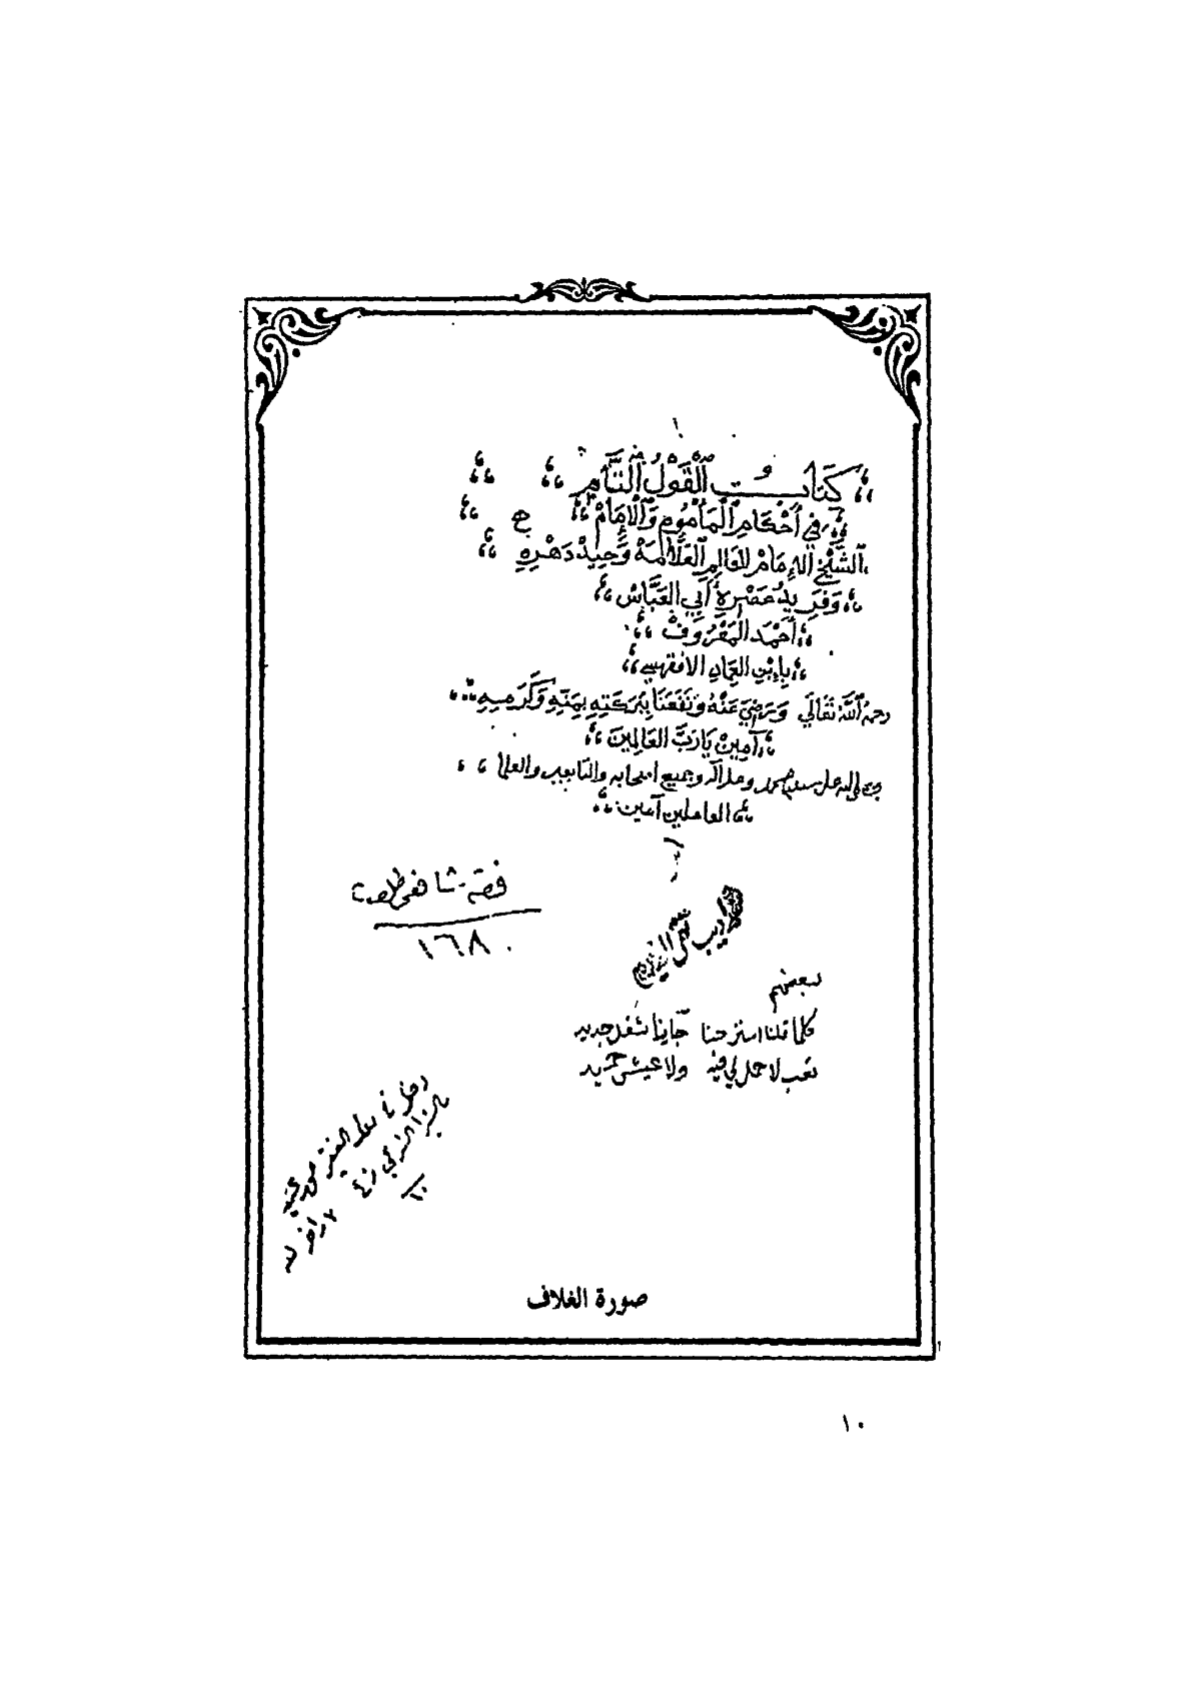 كِتَابُ الْقَوْلِ التَّامِّ
فِي أَحْكَامِ الْمَأْمُومِ وَالْإِمَامْ
الشَّيْخْ الإِمَامْ العَالِمِ العَلَّامَهْ وَحِيدْ دَهْرِهِ
وَفَرِيدُ عَصْرِهِ أَبِي العَبَّاسْ
أَحْمَدَ المَعْرُوفْ
بِإِبْنِ العِمَادِ الاقفهسي
رحمهُ اللَّهُ تَعَالَي وَرَضِيَ عَنْهُ وَنَفَعَنَا بِبَرَكَتِهِ بِمَنِّهِ وَكَرَمِهِ
آمِينْ يَارَبَّ العَالَمِينَ
صلى الله على سيدنا محمد وعلى آله وجميع اصحابه والتابعين والعلما
العاملين آمين
فقه شافعى طلعت
١٦٨
لبعضهم
كلما قلنا استرحنا جاينا شغل جديد
تعب لا حمل لي فيه ولا عيش حميد
صورة الغلاف
١٠